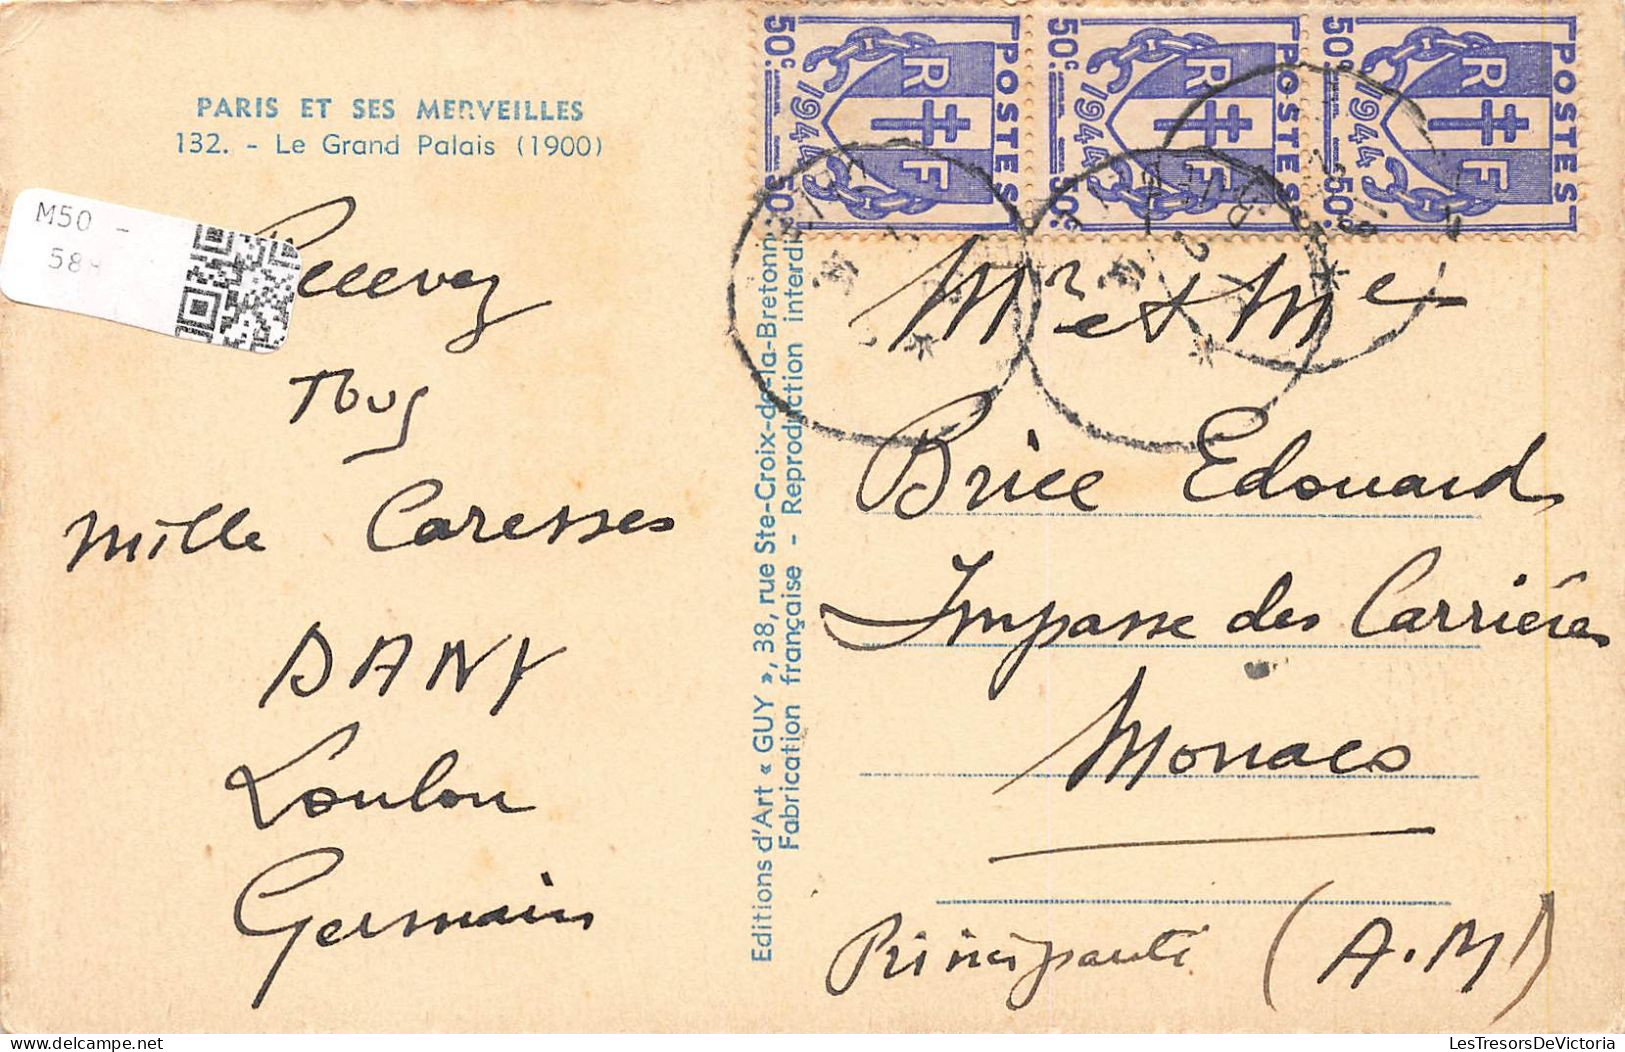 PARIS ET SES MERVEILLES
132. - Le Grand Palais (1900)
M50 -
58
Recevez
Tous
Mille Caresses
DANY
Loulou
Germain
Editions d'Art « GUY », 38, rue Ste-Croix-de-la-Bretonn
Fabrication française - Reproduction interdi
50c. 1944 RF POSTES 50c.
50c. 1944 RF POSTES 50c.
50c. 1944 RF POSTES 50c.
Mr et Me
Brice Edouard
Impasse des Carrières
Monaco
Principauté (A.M)
LesTresorsDeVictoria